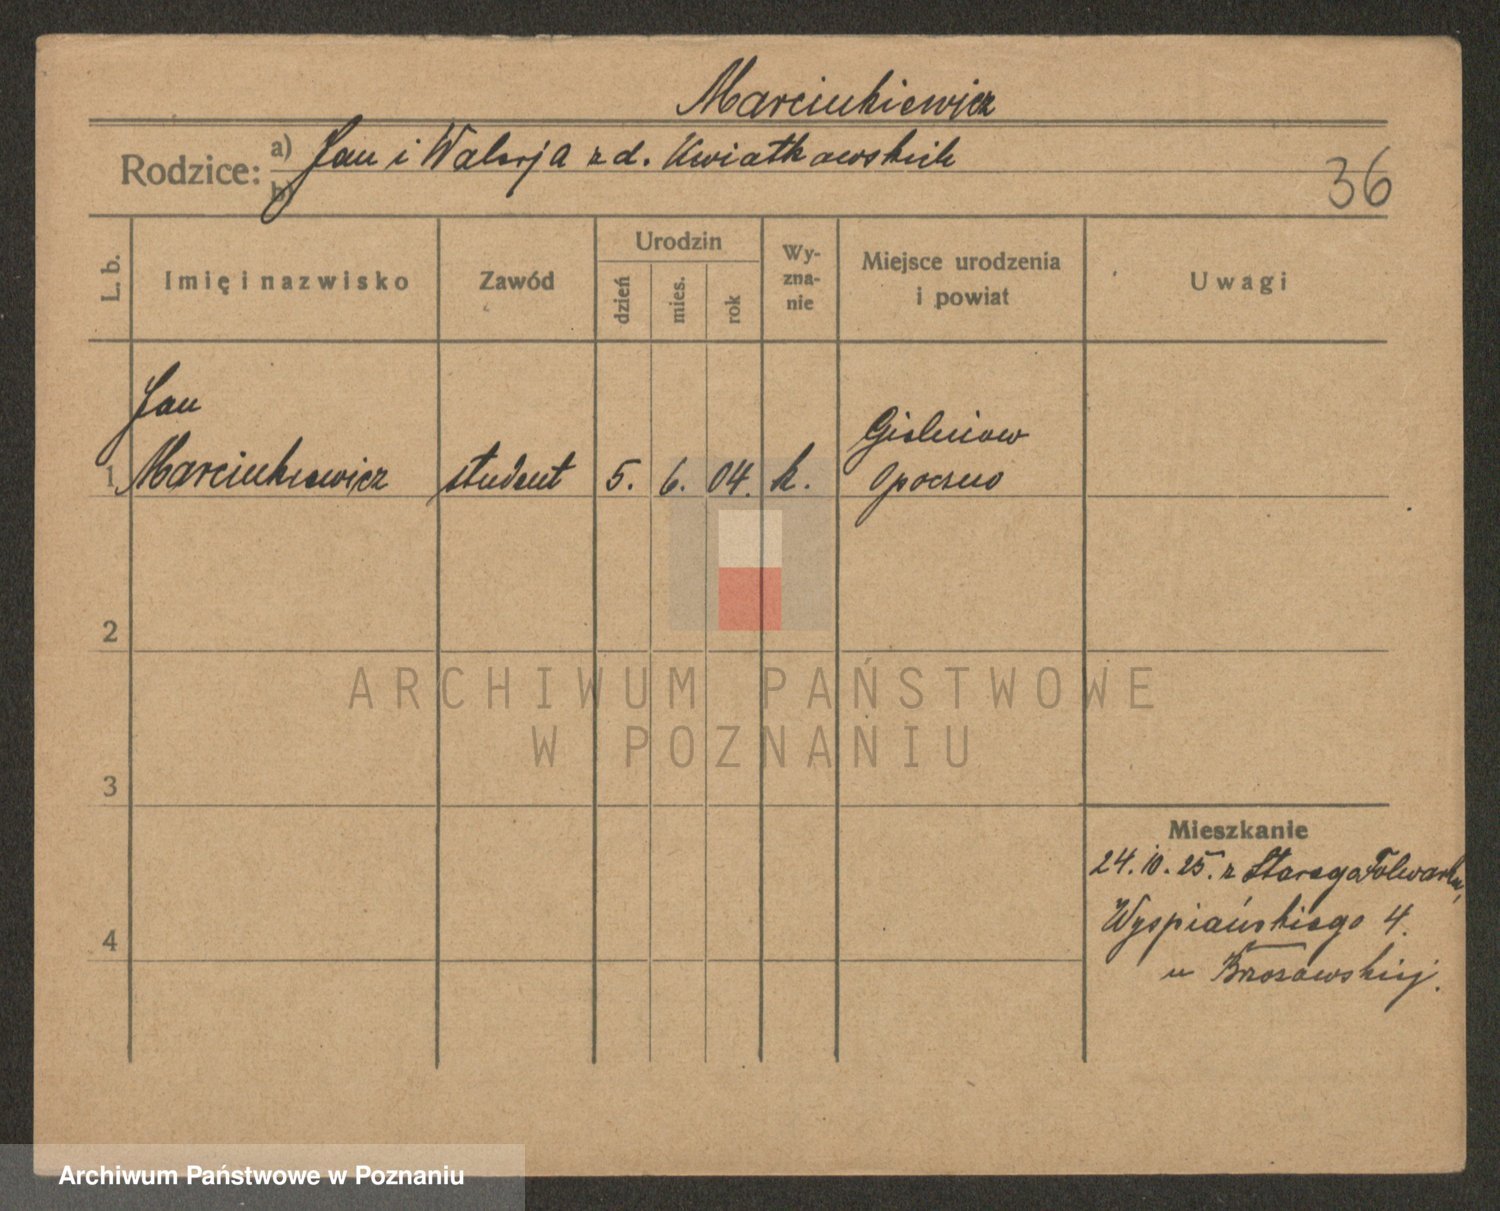 Marciukiewicz
Rodzice: a) Jan i Walerja z d. Kwiatkowskich
b)
36
L. b.
Imię i nazwisko
Zawód
Urodzin
dzień
mies.
rok
Wy-
zna-
nie
Miejsce urodzenia
i powiat
Uwagi
Jan
1 Marciukiewicz student 5. 6. 04. k. Gielniow
Opoczno
2
3
4
Mieszkanie
24.10.25. z Starego Folwarku,
Wyspiańskiego 4.
u Brzozowskiej.
ARCHIWUM PAŃSTWOWE
W POZNANIU
Archiwum Państwowe w Poznaniu